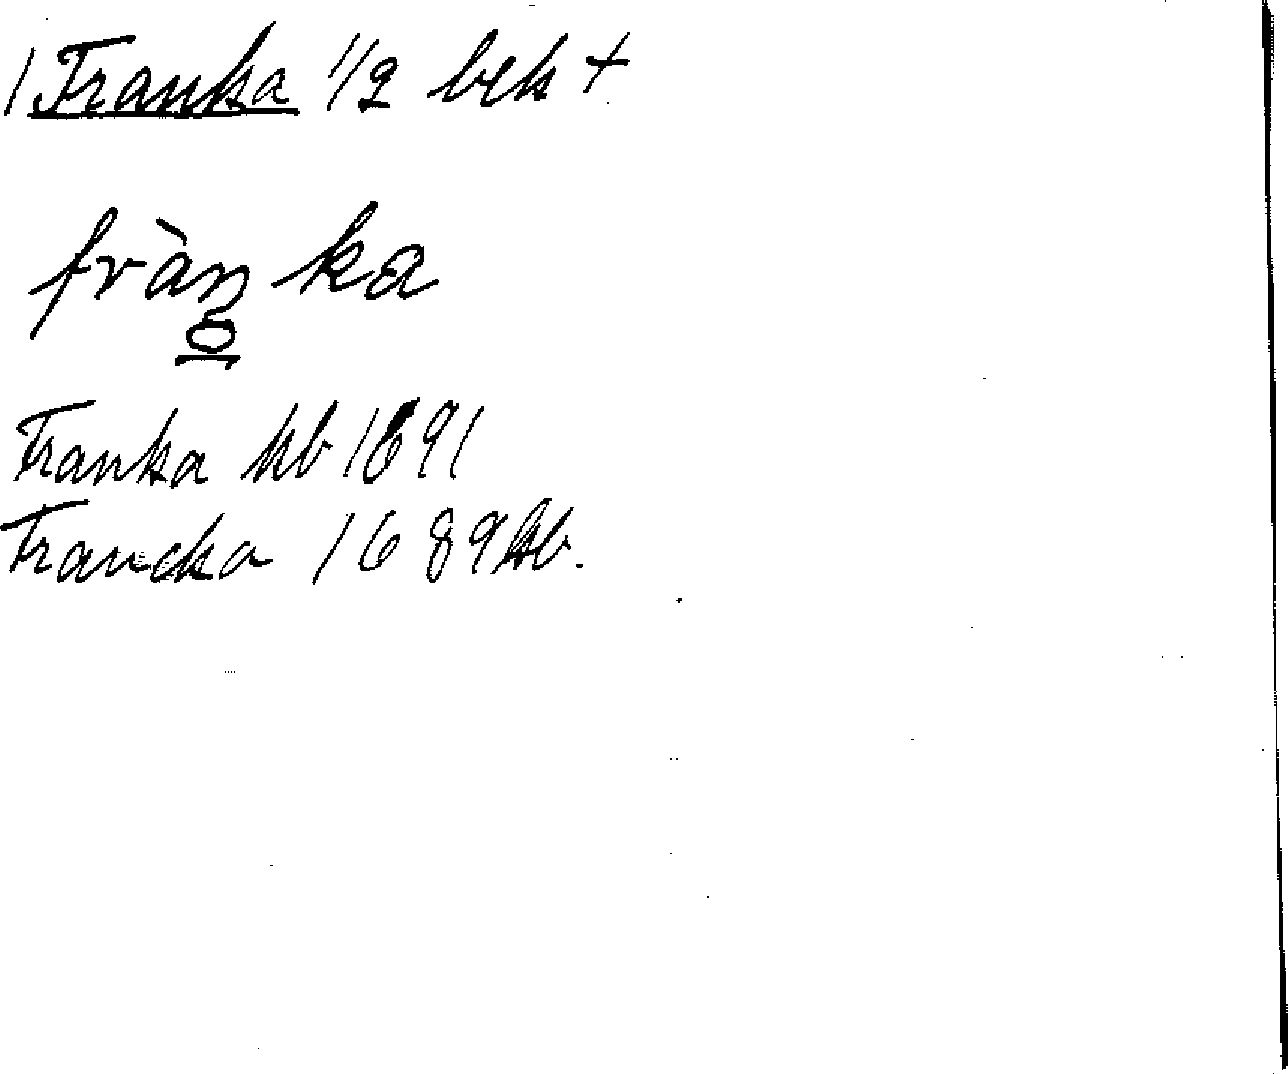 1 Franka 1/2 bek +
fràn̥ka
Franka kb 1691
Francka 1689 kb.